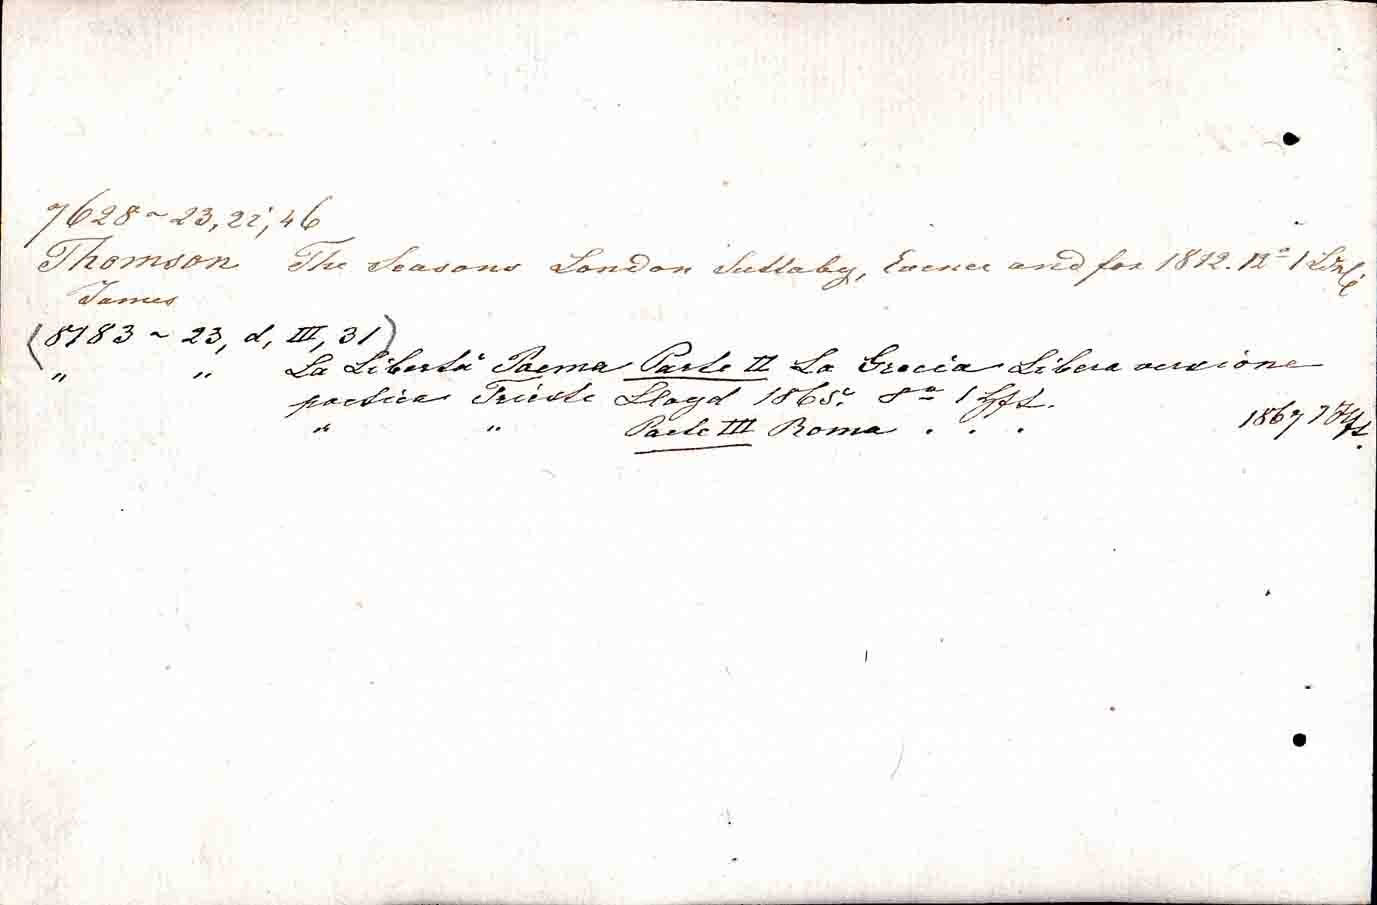 7628 ~ 23, 2i, 46
Thomson The Seasons London Suttaby, Evence and fox 1812. 12° 1
James
(8183 ~ 23, d, III, 31)
" " La Libertà Poema Parte II La Grecia Libera versione
poetica Trieste Lloyd 1865. 8° 1 Hft.
" " Parte III Roma . . . 1867 1 Hft.